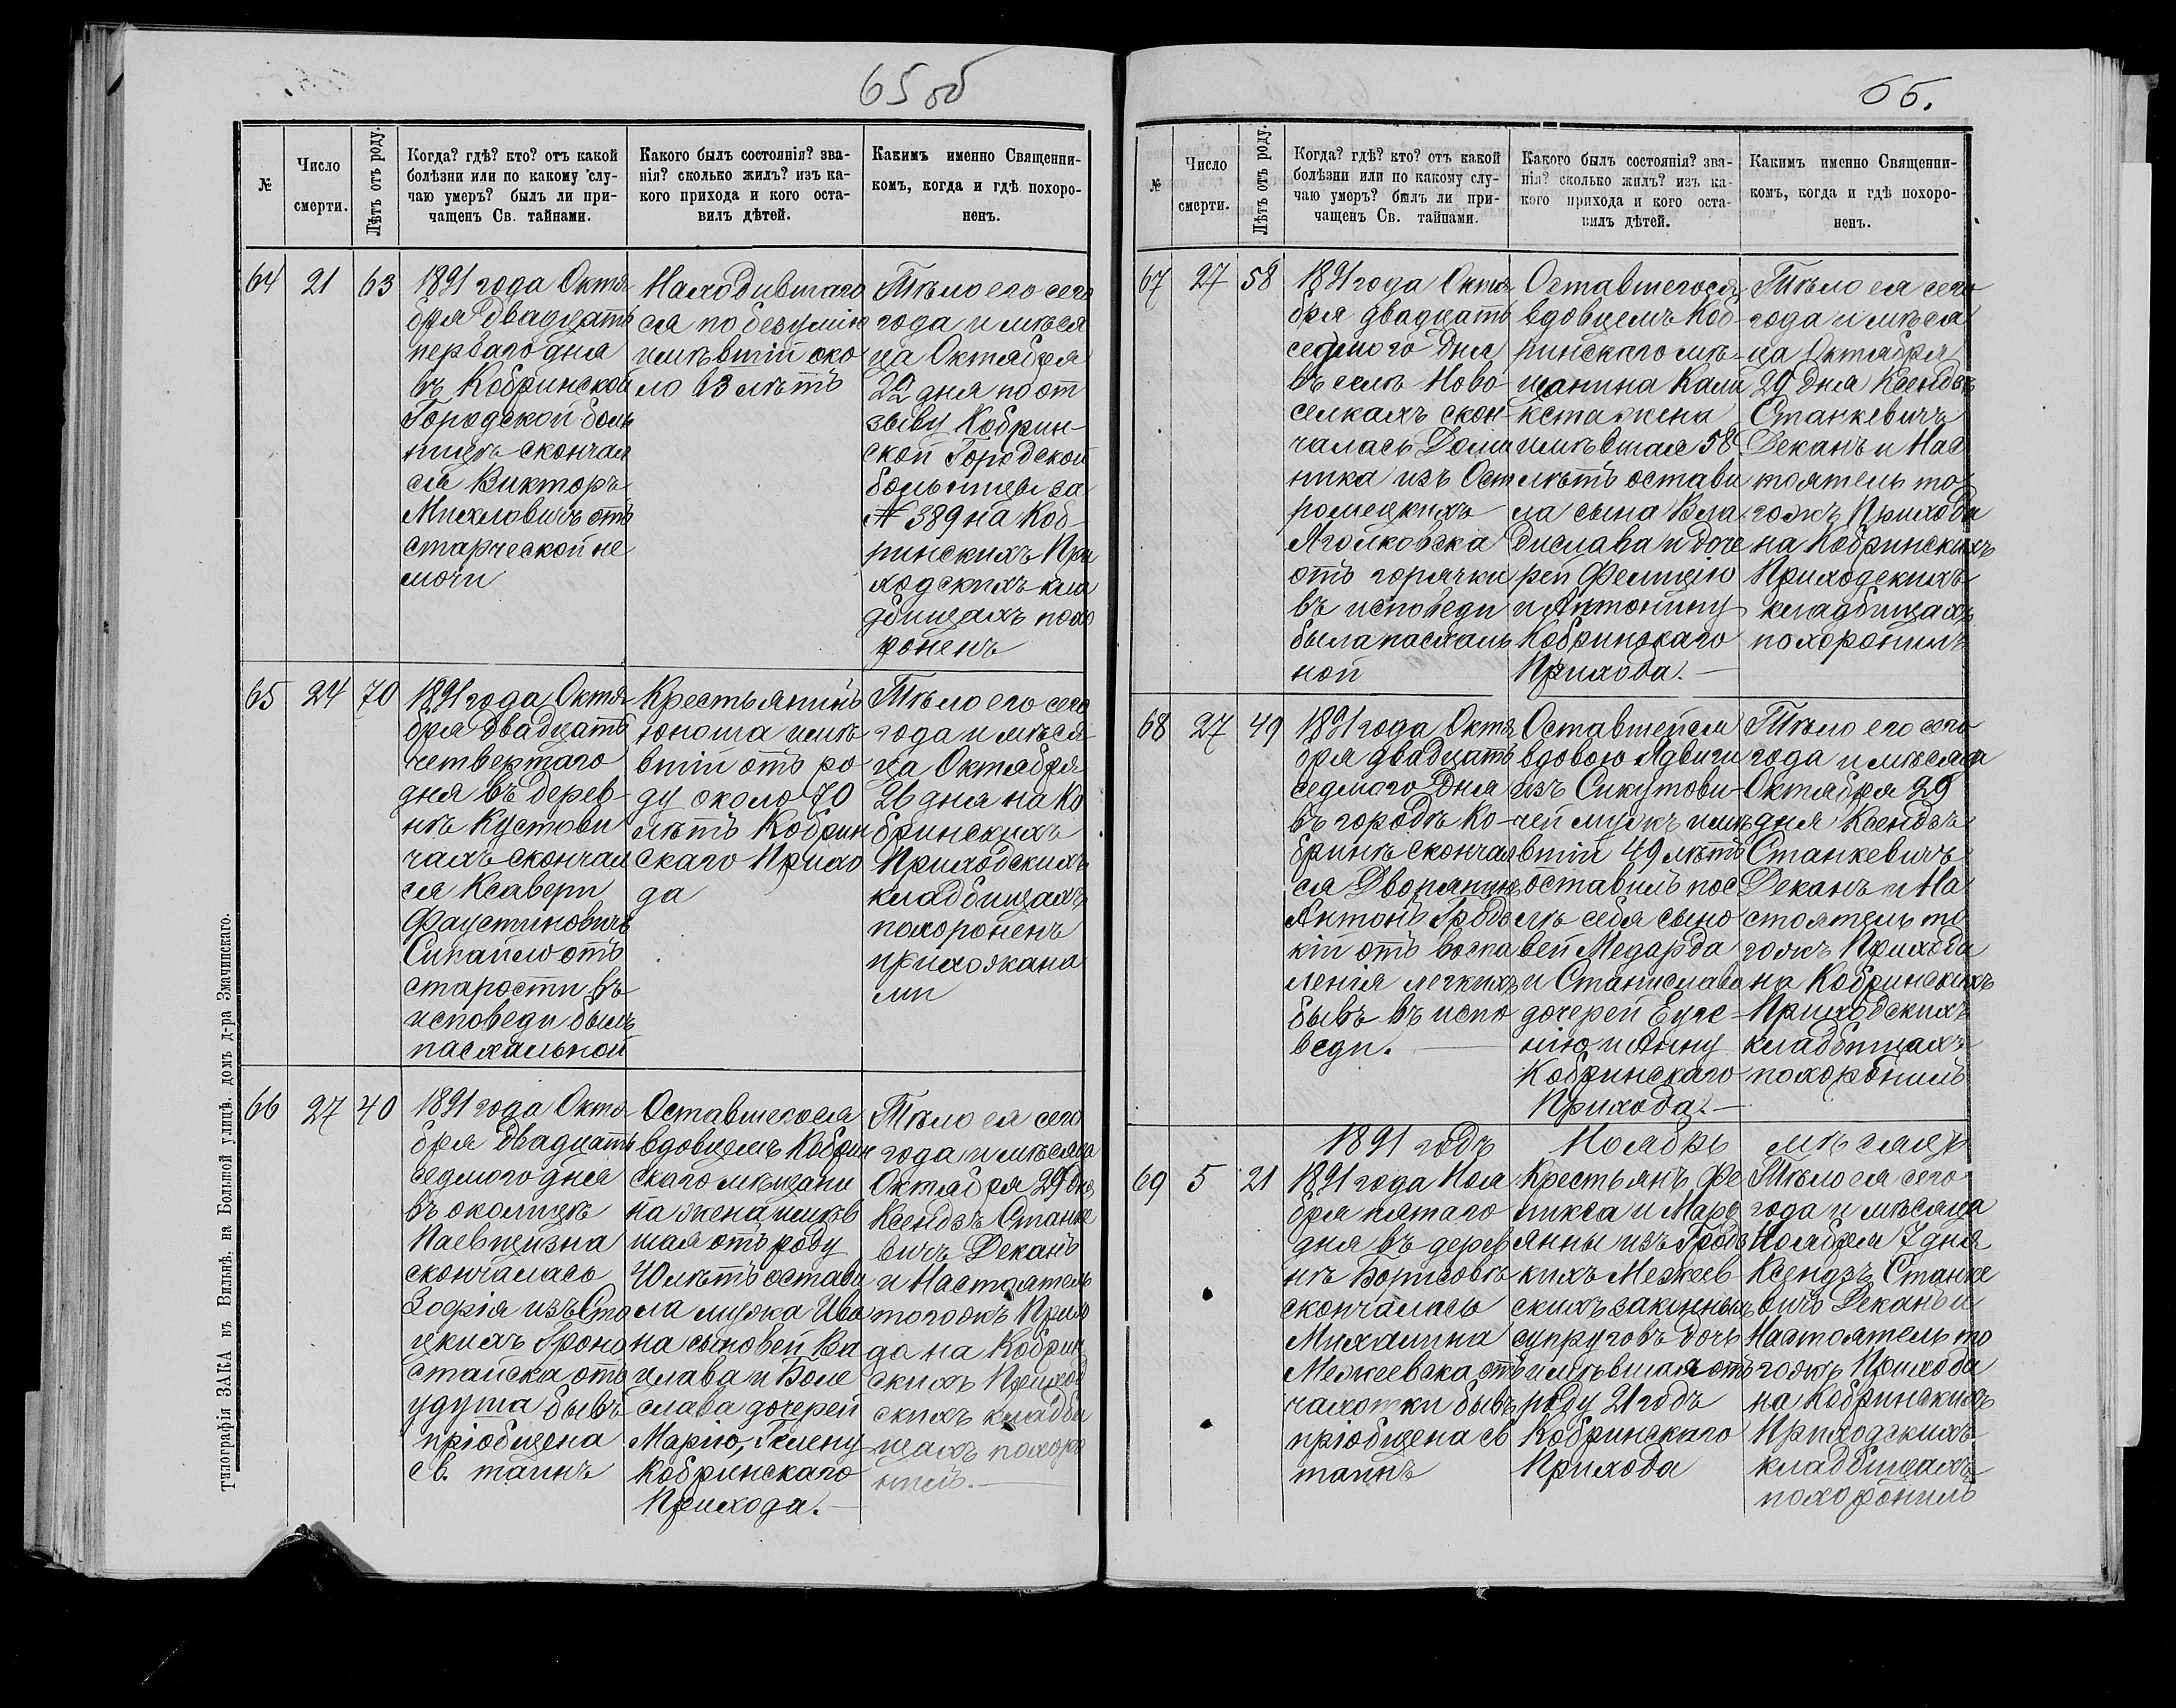 65 об
№
Число
смерти.
Лѣтъ отъ роду.
Когда? гдѣ? кто? отъ какой
болѣзни или по какому слу-
чаю умеръ? былъ ли при-
чащенъ Св. тайнами.
Какого былъ состоянія? зва-
нія? сколько жилъ? изъ ка-
кого прихода и кого оста-
вилъ дѣтей.
Какимъ именно Священни-
комъ, когда и гдѣ похоро-
ненъ.
64
21
63
1891 года Октя
бря двадцать
перваго дня
въ Кобринской
Городской боль
ницѣ скончал
ся Викторъ
Михловичъ отъ
старческой не
мочи
Находившаго
ся по безумію
имѣвшій око
ло 63 лѣтъ
Тѣло его сего
года и мѣся
ца Октября
22 дня по от
зыву Кобрин-
ской Городской
больницы за
№ 389 на Коб-
ринскихъ При
ходскихъ кла
дбищахъ похо
роненъ
65
24
70
1891 года Октя-
бря двадцать
четвертаго
дня въ дерев-
нѣ Кустови
чахъ скончал
ся Ксаверій
Фаустиновичъ
отъ
старости въ
исповеди былъ
пасхальной
Крестьянинъ
юноша имѣ
вшій отъ ро
ду около 70
лѣтъ Кобрин
скаго Прихо
да
Тѣло его сего
года и мѣся-
ца Октября
26 дня на Ко
бринскихъ
Приходскихъ
кладбищахъ
похороненъ
прихожана
ми
66
27
40
1891 года Октя-
бря двадцать
седмого дня
въ околицѣ
Паевщизна
скончалась
Зофія изъ Сто
цкихъ Гроно
стайска отъ
удуша бывъ
пріобщена
св. таинъ
Оставшегося
вдовцемъ Кобрин
скаго мѣщани
на жена имѣв
шая отъ роду
40 лѣтъ остави
ла мужа Ива
на сыновей Ва
цлава и Боле
слава дочерей
Марію, Гелену
Кобринскаго
Прихода.-
Тѣло ея сего
года и мѣсяца
Октября 29 дня
Ксендзъ Станке
вичъ Деканъ
и Настоятель
тогожъ Прихо
да на Кобрин
скихъ Приход
скихъ кладби
щахъ похоро
нилъ.-
Типографія ЗАКА въ Вильнѣ, на Большой улицѣ, домъ д-ра Змачинскаго.
66.
№
Число
смерти.
Лѣтъ отъ роду.
Когда? гдѣ? кто? отъ какой
болѣзни или по какому слу-
чаю умеръ? былъ ли при-
чащенъ Св. тайнами.
Какого былъ состоянія? зва-
нія? сколько жилъ? изъ ка-
кого прихода и кого оста-
вилъ дѣтей.
Какимъ именно Священни-
комъ, когда и гдѣ похоро-
ненъ.
67
27
58
1891 года Октя
бря двадцать
седмого дня
въ селѣ Ново
селкахъ скон-
чалась Доми
ника изъ Ост
ромецкихъ
Яголковска
отъ горячки
въ исповеди
была пасхаль
ной
Оставшегося
вдовцемъ Коб-
ринскаго мѣ-
щанина Кали
кста жена
имѣвшая 58
лѣтъ остави
ла сына Вла
дислава и доче
рей Фелицію
и Антонину
Кобринскаго
Прихода.-
Тѣло ея сего
года и мѣся
ца Октября
29 дня Ксендзъ
Станкевичъ
Деканъ и Нас
тоятель то
гожъ Прихода
на Кобринскихъ
Приходскихъ
кладбищахъ
похоронилъ
68
27
49
1891 года Октя
бря двадцать
седмого дня
въ городѣ Ко-
бринѣ скончал
ся Дворянинъ
Антонъ Гродз
кій отъ воспа
ленія легкихъ
бывъ въ испо
веди.-
Оставшейся
вдовою Ядвиги
изъ Сикутови-
чей мужъ имѣ
вшій 49 лѣтъ
оставилъ пос
лѣ себя сыно
вей Медарда
и Станислава
дочерей Евге-
нію и Анну
Кобринскаго
Прихода.-
Тѣло его сего
года и мѣсяца
Октября 29
дня Ксендзъ
Станкевичъ
Деканъ и На
стоятель то
гожъ Прихода
на Кобринскихъ
Приходскихъ
кладбищахъ
похоронилъ
1891 годъ Ноябрь мѣсяцъ
69
5
21
1891 года Ноя
бря пятаго
дня въ дерев
нѣ Борисовѣ
скончалась
Михалина
Межеевска отъ
чахотки бывъ
пріобщена св
таинъ
Крестьянъ Фе
ликса и Мар
янны изъ Гродз
кихъ Межеев
скихъ законныхъ
супруговъ дочь
имѣвшая отъ
роду 21 годъ
Кобринскаго
Прихода
Тѣло ея сего
года и мѣсяца
Ноября 7 дня
Ксендзъ Станке
вичъ Деканъ и
Настоятель то
гожъ Прихода
на Кобринскихъ
Приходскихъ
кладбищахъ
похоронилъ